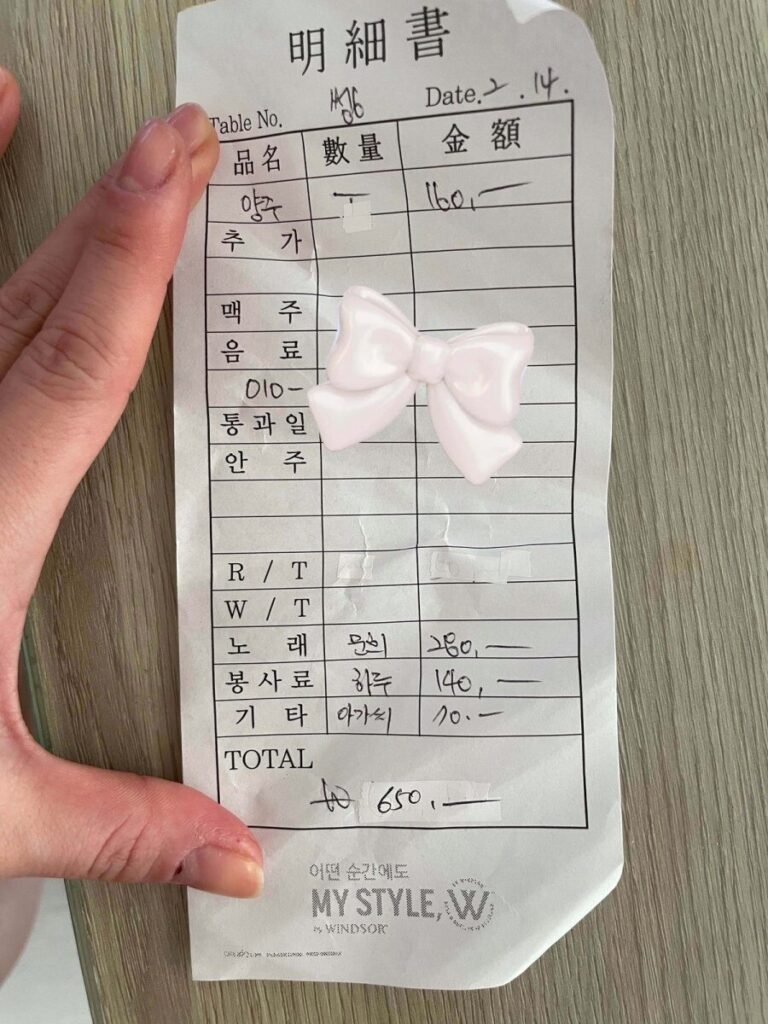 明細書
Table No. Date. 2.14.
品名 數量 金額
양주 一 160,—
추 가
맥 주
음 료
010-
통과일
안 주
R / T
W / T
노 래 문희 280,—
봉사료 하루 140,—
기 타 아가씨 70.—
TOTAL
650,—
어떤 순간에도
MY STYLE, W
by WINDSOR